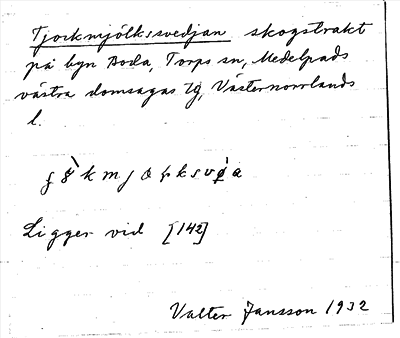 Tjockmjölksvedjan skogstrakt
på byn Boda, Torps sn, Medelpads
västra domsagas tg, Västernorrlands
l.
Ligger vid [142]
Valter Jansson 1932